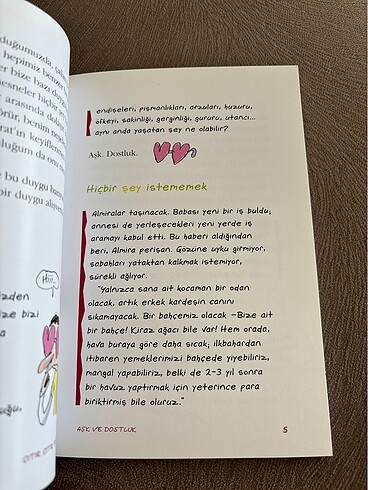 duğumuzda,
hepimiz benzer
er bize bazı
nesneler hiçbir
arasında
benim
keyiflen
duğum da
e bu duygu
bir duygu
Hiii...
ize bizi
endişeleri, pişmanlıkları, arzuları, huzuru,
öfkeyi, sakinliği, gerginliği, gururu, utancı...
aynı anda yaşatan şey ne olabilir?
Aşk. Dostluk.
Hiçbir şey istememek
Almiralar taşınacak. Babası yeni bir iş buldu,
annesi de yerleşecekleri yeni yerde iş
aramayı kabul etti. Bu haberi aldığından
beri, Almira perişan. Gözüne uyku girmiyor,
sabahları yataktan kalkmak istemiyor,
sürekli ağlıyor.
"Yalnızca sana ait kocaman bir odan
olacak, artık erkek kardeşin canını
sıkamayacak. Bir bahçemiz olacak -Bize ait
bir bahçe! Kiraz ağacı bile var! Hem orada,
hava buraya göre daha sıcak; ilkbahardan
itibaren yemeklerimizi bahçede yiyebiliriz,
mangal yapabiliriz, belki de 2-3 yıl sonra
bir havuz yaptırmak için yeterince para
biriktirmiş bile oluruz."
AŞK VE DOSTLUK 5